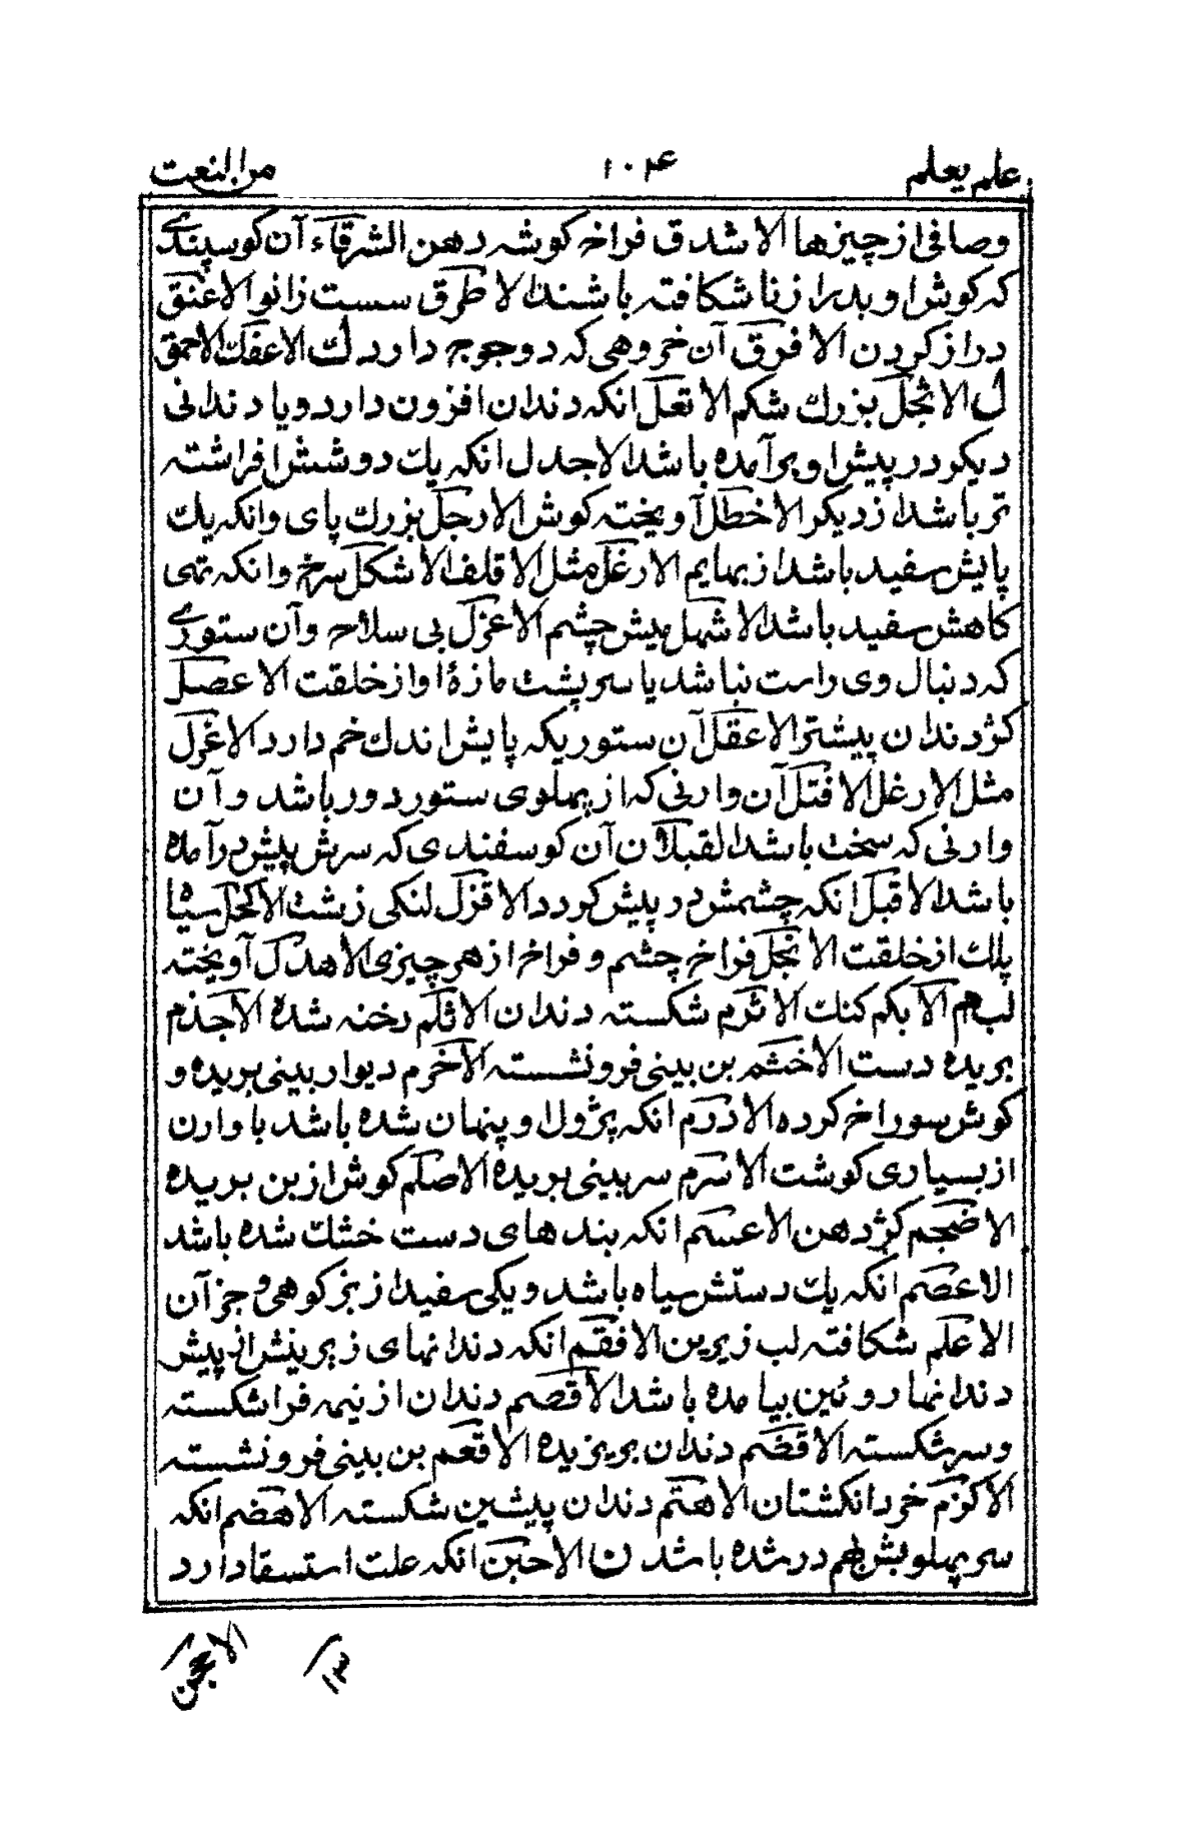 علم يعلم ۱۰۴ من النعت
وصافی از چیزها الاشدق فراخ کوشه دهن الشرقاء آن کوسپندے
که کوش او بدرازنا شکافته باشند الاطرق سست زانو الاعنق
دراز کردن الافرق آن خروهی که دو جوجه دارد ك الاعفك الاحمق
ل الاثجل بزرك شکم الاثعل انکه دندان افزون دارد ویا دندانی
دیکر در پیش او برآمده باشد الاجدل انکه یك دوشش افراشته
تر باشد از دیکر الاخطل آویخته کوش الارجل بزرك پای وانکه یك
پایش سفید باشد از بهایم الارغل مثل الاقلف الاشکل سرخ وانکه تهی
کاهش سفید باشد الاشهل میش چشم الاعزل بی سلاح وآن ستورے
که دنبال وی راست نباشد یا سر پشت مازۀ او از خلقت الاعصل
کژ دندان بیشتر الاعقل آن ستوریکه پایش اندك خم دارد الاغرل
مثل الارغل الافتل آن وارنی که از پهلوی ستور دور باشد وآن
وارنی که سخت باشد القبلان آن کوسفندی که سرش پیش درآمده
باشد الاقبل انکه چشمش در پیش کردد الاقزل لنکی زشت الاکحل سیاه
پلك از خلقت الانجل فراخ چشم وفراخ از هر چیزی الاهدل آویخته
لب م الابکم کنك الاثرم شکسته دندان الاثلم رخنه شده الاجذم
بریده دست الاخثم بن بینی فرونشسته الاخرم دیوار بینی بریده و
کوش سوراخ کرده الادرم انکه پژول او پنهان شده باشد با وارن
از بسیاری کوشت الاشرم سر بینی بریده الاصلم کوش از بن بریده
الاضجم کژ دهن الاعسم انکه بندهای دست خشك شده باشد
الاعصم انکه یك دستش سیاه باشد ویکی سفید از بز کوهی وجز آن
الاعلم شکافته لب زیرین الافقم انکه دندانهای زبرینش از پیش
دندانها روئین بیامده باشد الاقصم دندان از نیمه فراشکسته
وسر شکسته الاقضم دندان بریزیده الاقعم بن بینی فرونشسته
الاکزم خرد انکشتان الاهتم دندان پیشین شکسته الاهضم انکه
سر پهلویش بهم در شده باشد ن الاحبن انکه علت استسقا دارد
۱۳ الابجن